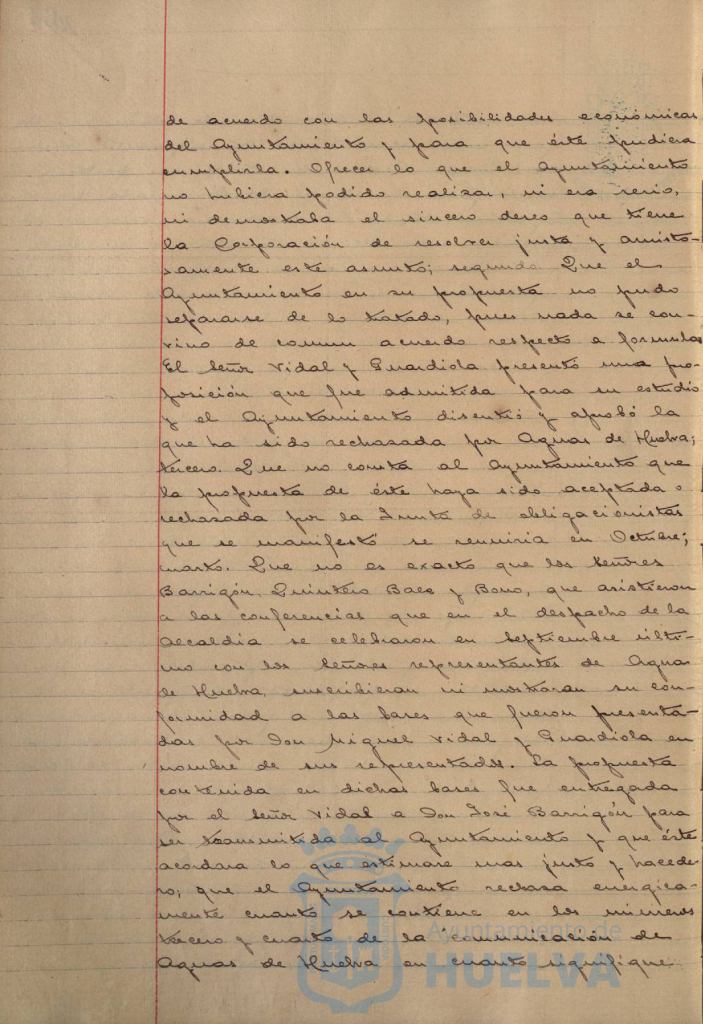 de acuerdo con las posibilidades económicas
del Ayuntamiento y para que éste pudiera
cumplirla. Ofrecer lo que el Ayuntamiento
no hubiera podido realizar, ni era serio,
ni demostraba el sincero deseo que tiene
la Corporación de resolver justa y amisto-
samente este asunto; segundo. Que el
Ayuntamiento en su propuesta no pudo
separarse de lo tratado, pues nada se con-
vino de comun acuerdo respecto a formulas
El Señor Vidal y Guardiola presentó una pro-
posición que fue admitida para su estudio
y el Ayuntamiento discutió y aprobó la
que ha sido rechazada por Aguas de Huelva;
tercero. Que no consta al Ayuntamiento que
la propuesta de éste haya sido aceptada o
rechazada por la Junta de obligacionistas
que se manifestó se reuniria en Octubre;
cuarto. Que no es exacto que los Señores
Barrigón, Quintero Baez y Bono, que asistieron
a las conferencias que en el despacho de la
Alcaldía se celebraron en Septiembre últi-
mo con los Señores representantes de Aguas
de Huelva, suscribieran ni mostraran su con-
formidad a las bases que fueron presenta-
das por Don Miguel Vidal y Guardiola en
nombre de sus representados. La propuesta
contenida en dichas bases fue entregada
por el Señor Vidal a Don José Barrigón para
ser transmitida al Ayuntamiento y que éste
acordara lo que estimase mas justo y hacede-
ro; que el Ayuntamiento rechaza energica-
mente cuanto se contiene en los números
tercero y cuarto de la comunicación de
Aguas de Huelva en cuanto signifique
Ayuntamiento de
HUELVA